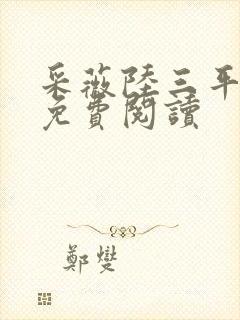 采薇陸三平
免費閱讀
鄭燮